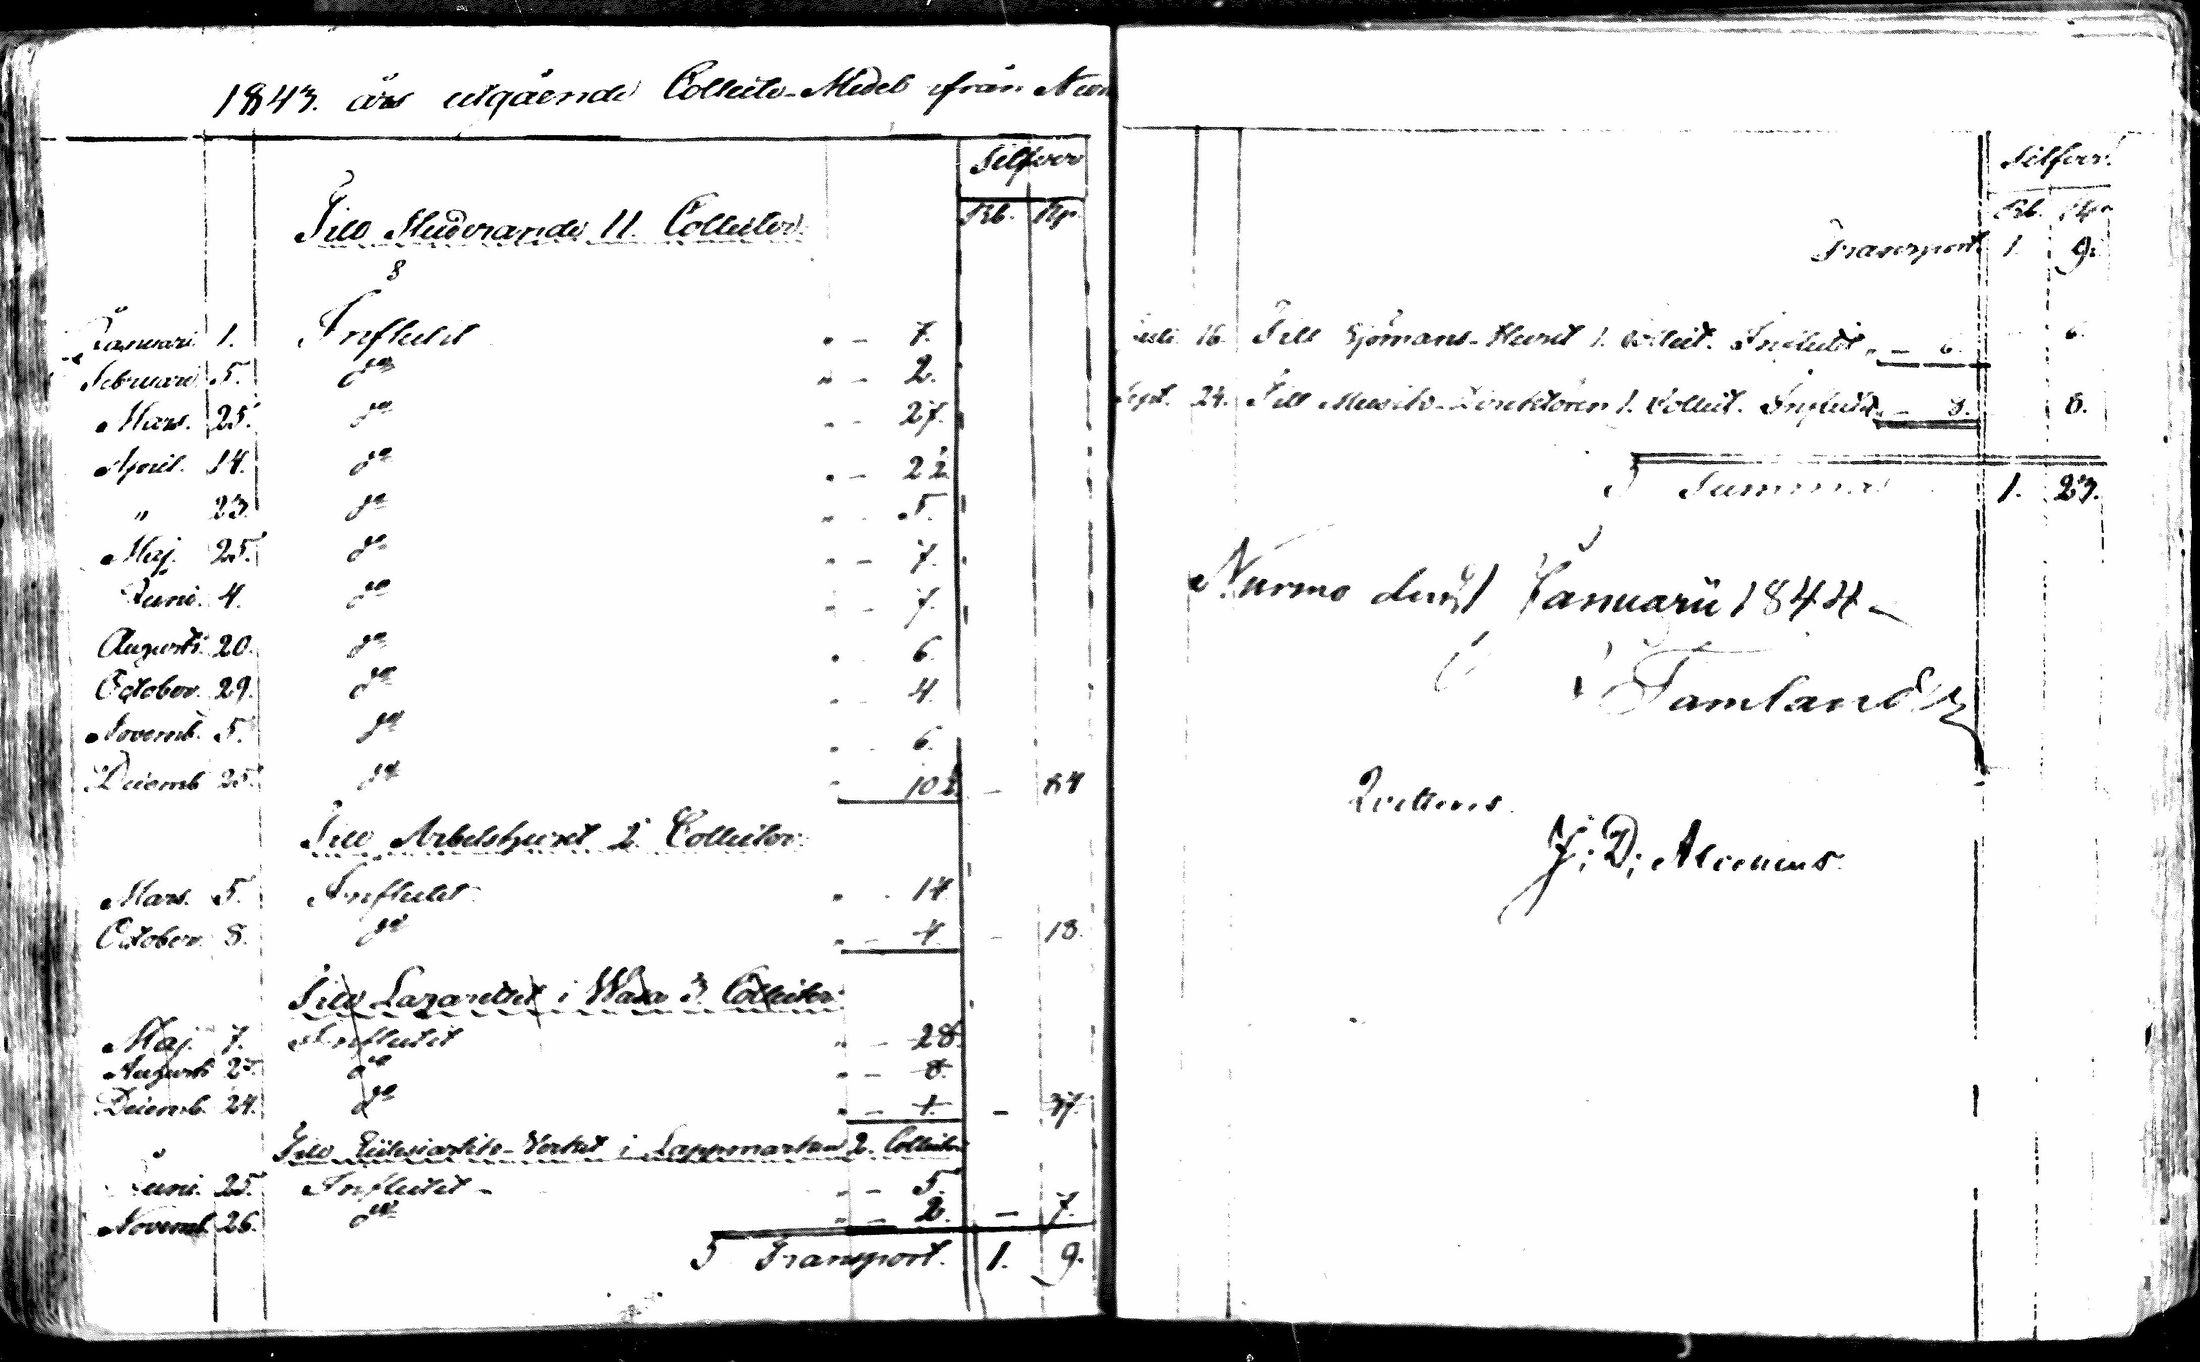 1843. års utgående Collects-Medel ifrån Nur
Silfver
Rb. Kp.
Till Studerande 11. Collecter.
8
Januari 1. Influtit " - 7.
Februari 5. do " - 2.
Mars. 25. do " - 27.
April. 14. do " - 2½
" 23. do " - 5.
Maj. 25. do " - 7.
Juni. 4. do " - 7.
Augusti. 20. do " - 6.
October. 29. do " - 4.
Novemb. 5. do " - 6.
Decemb. 25. do " 10½ - 84
Till Arbetshuset 2. Collecter.
Mars. 5. Influtit " - 14
October. 8. do " - 4. - 18.
Till Lazarettet i Wasa 3. Collecter
Maj. 7. Influtit " - 28.
Augusti 27. do " - 8.
Decemb. 24. do " - 1. - 37.
Till Ecclesiastik-Verket i Lappmarken 2. Collecter
Juni. 25. Influtit - " - 5.
Novemb. 26. do " - 2. - 7.
Transport. 1. 9.
Silfver.
Rb. Kp.
Transport. 1. 9.
Juli. 16. Till Sjömans-Huset 1. Collect. Influtit " - 6. 6.
Sept. 24. Till Musik-Direktören 1. Collect. Influtit " - 8. 8.
Summa 1. 23.
Nurmo den 1 Januarii 1844 -
Tamlander
J: D; Alcenius.